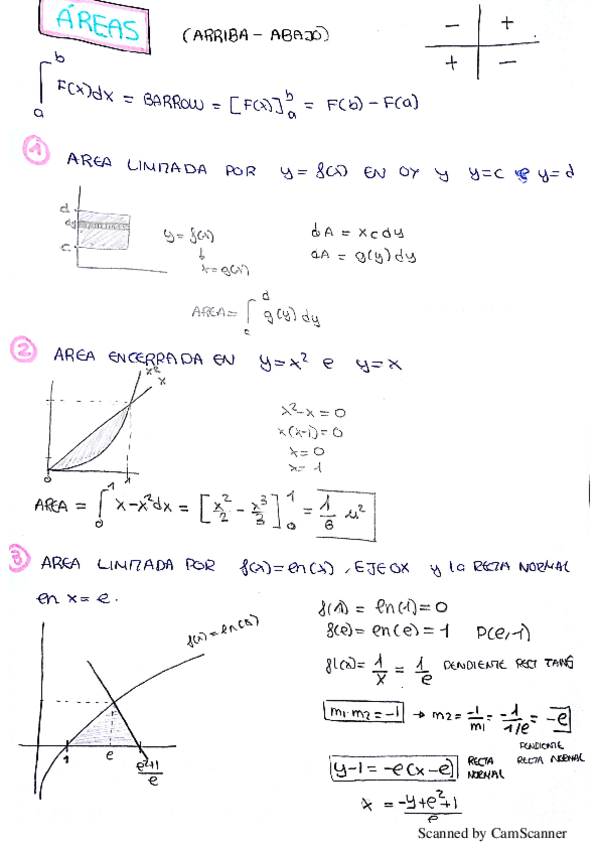 ÁREAS (ARRIBA - ABAJO) - + + -
∫ₐᵇ F(x)dx = BARROW = [F(x)]ₐᵇ = F(b) - F(a)
① AREA LIMITADA POR y = f(x) EN OY y y=c e y=d
d
dy
c
y = f(x)
x = g(x)
dA = x c dy
dA = g(y) dy
AREA = ∫ d c g(y) dy
② AREA ENCERRADA EN y=x² e y=x
x²
x
0 1
x²-x=0
x(x-1)=0
x=0
x=1
AREA = ∫₀¹ x-x²dx = [x²/2 - x³/3]₀¹ = 1/6 u²
③ AREA LIMITADA POR f(x)=ln(x), EJE OX y la RECTA NORMAL
en x=e.
f(x)=ln(x)
1 e e²+1/e
f(1) = ln(1)=0
f(e)=ln(e)=1 P(e,1)
f'(x)=1/x=1/e PENDIENTE RECT TANG
m₁·m₂=-1 → m₂=-1/m₁=-1/1/e=-e
PENDIENTE RECTA NORMAL
y-1=-e(x-e) RECTA NORMAL
x = -y+e²+1/e
Scanned by CamScanner